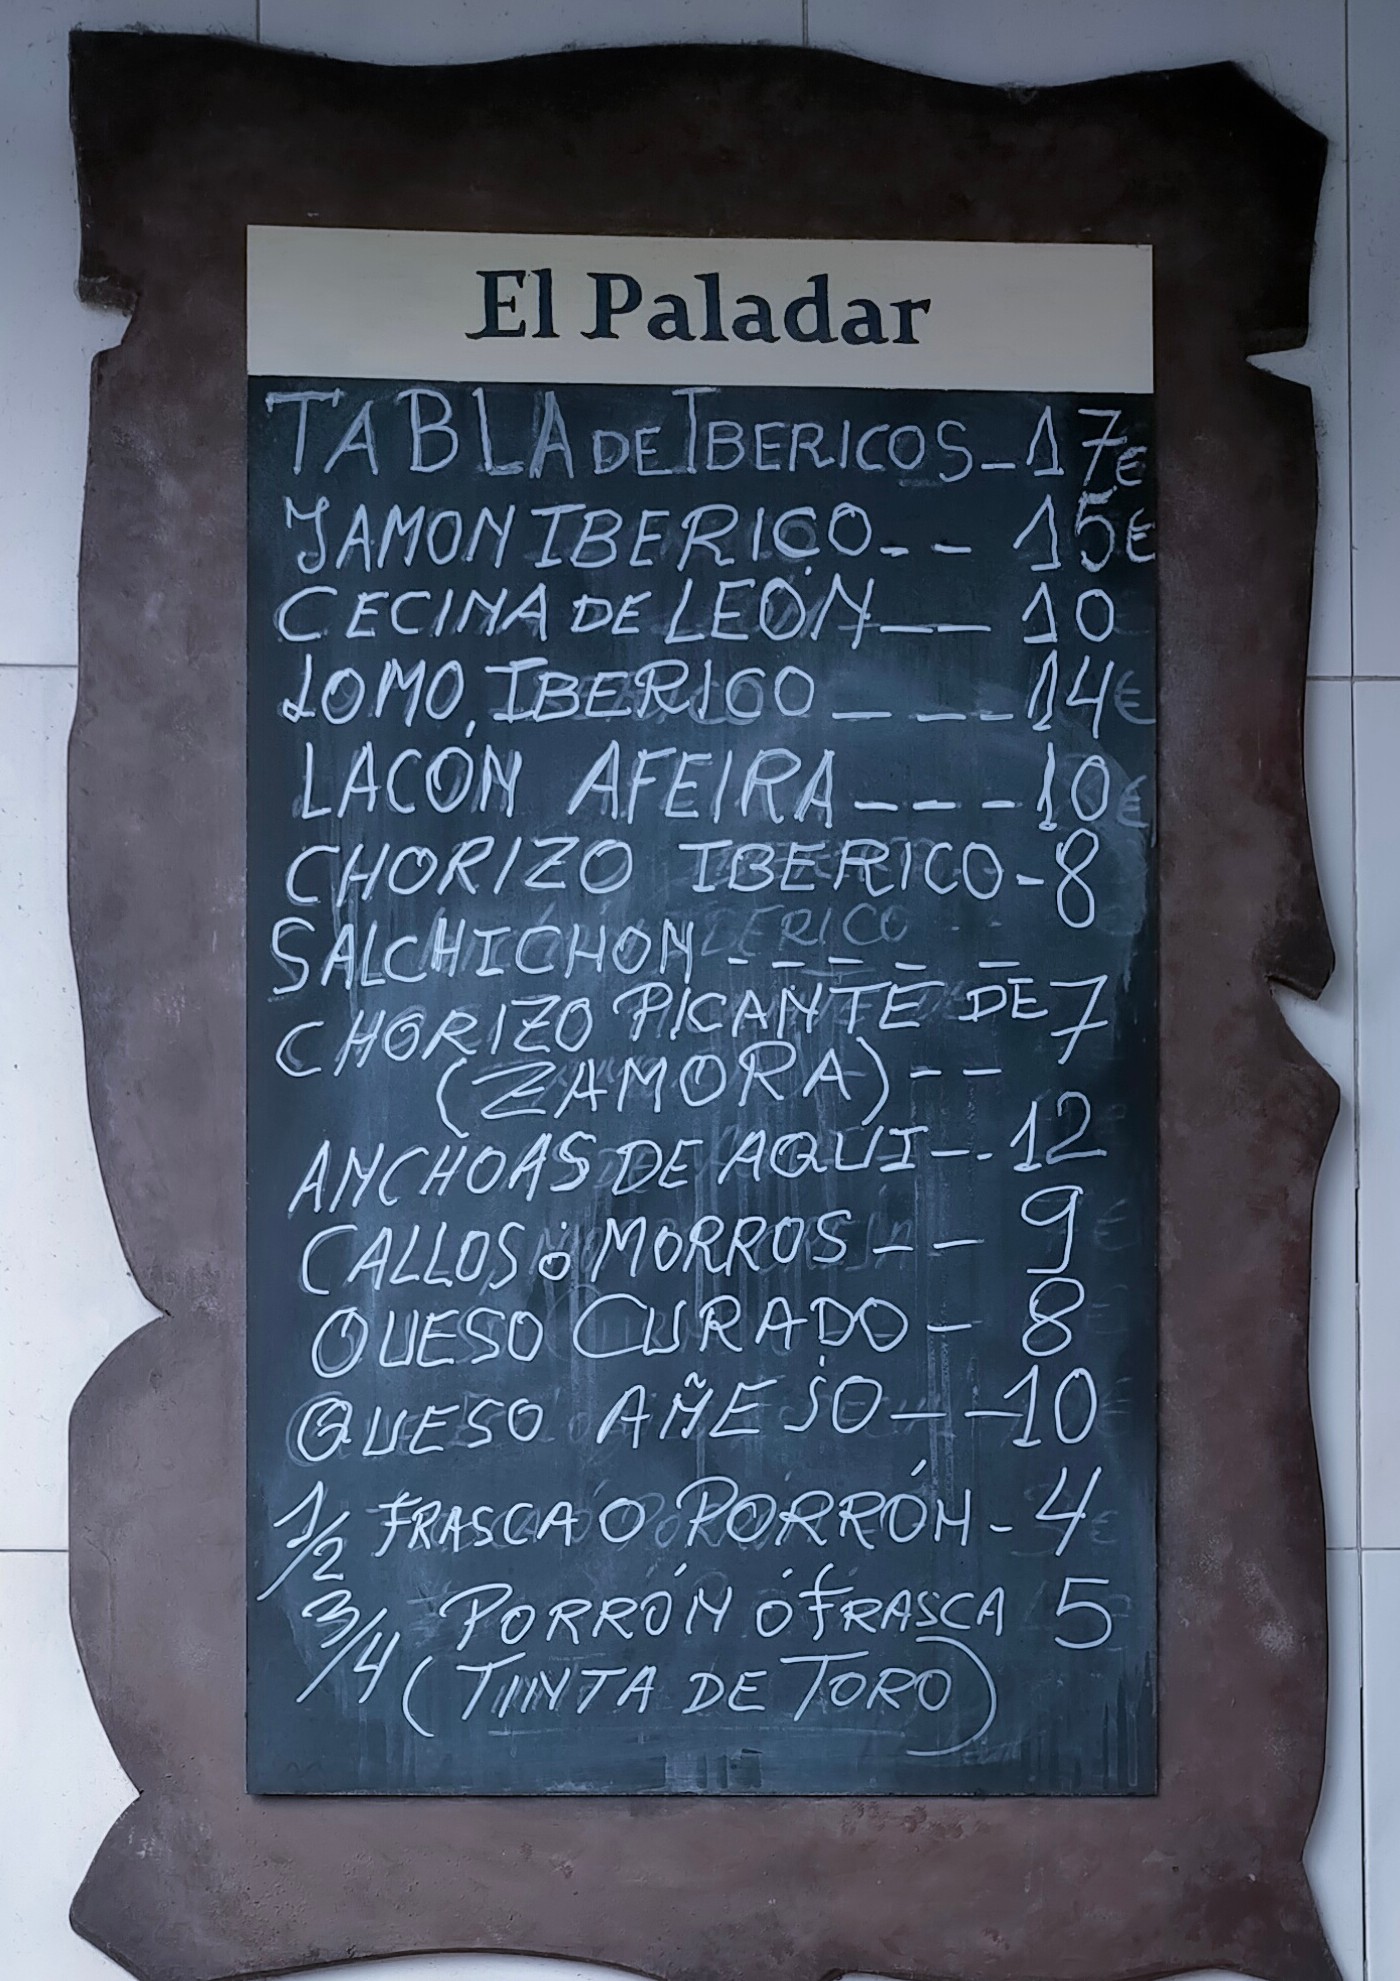 El Paladar
TABLA DE IBERICOS - 17€
JAMON IBERICO - - 15€
CECINA DE LEÓN - - 10
LOMO IBERICO - - - 14€
LACÓN AFEIRA - - - 10€
CHORIZO IBERICO - 8
SALCHICHON - - - - - -
CHORIZO PICANTE DE 7
(ZAMORA) - -
ANCHOAS DE AQUI - - 12
CALLOS ó MORROS - - 9
QUESO CURADO - 8
QUESO AÑEJO - - 10
1/2 FRASCA O PORRÓN - 4
3/4 PORRÓN ó FRASCA 5
(TINTA DE TORO)